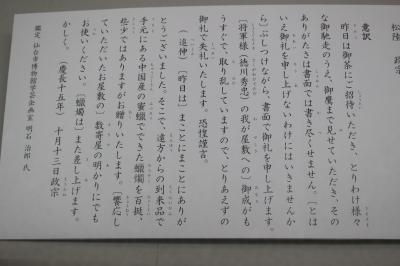 松陸 政宗
意訳
昨日は御茶にご招待いただき、とりわけ様々
な御馳走のうえ、御鷹まで見せていただき、その
ありがたさは書面では書き尽くせません。〔とは
いえ御礼を申し上げないわけにはいきませんか
ら〕ぶしつけながら、書面で御礼を申し上げます。
〔将軍様（徳川秀忠）の我が屋敷への〕御成がも
うすぐで、取り乱していますので、とりあえずの
御礼で失礼いたします。恐惶謹言。
（追伸）〔昨日は〕まことにまことにありが
とうございました。そこで、遠方からの到来品で
手元にある中国産の蜜蠟でできた蠟燭を百挺、
些少ではありますがお贈りいたします。〔饗応し
ていただいたお屋敷の〕数寄屋の明かりにでも
お使いください。〔蠟燭は〕また差し上げます。
かしく。（慶長十五年）十月十三日政宗
鑑定 仙台市博物館学芸企画室 明石 治郎 氏